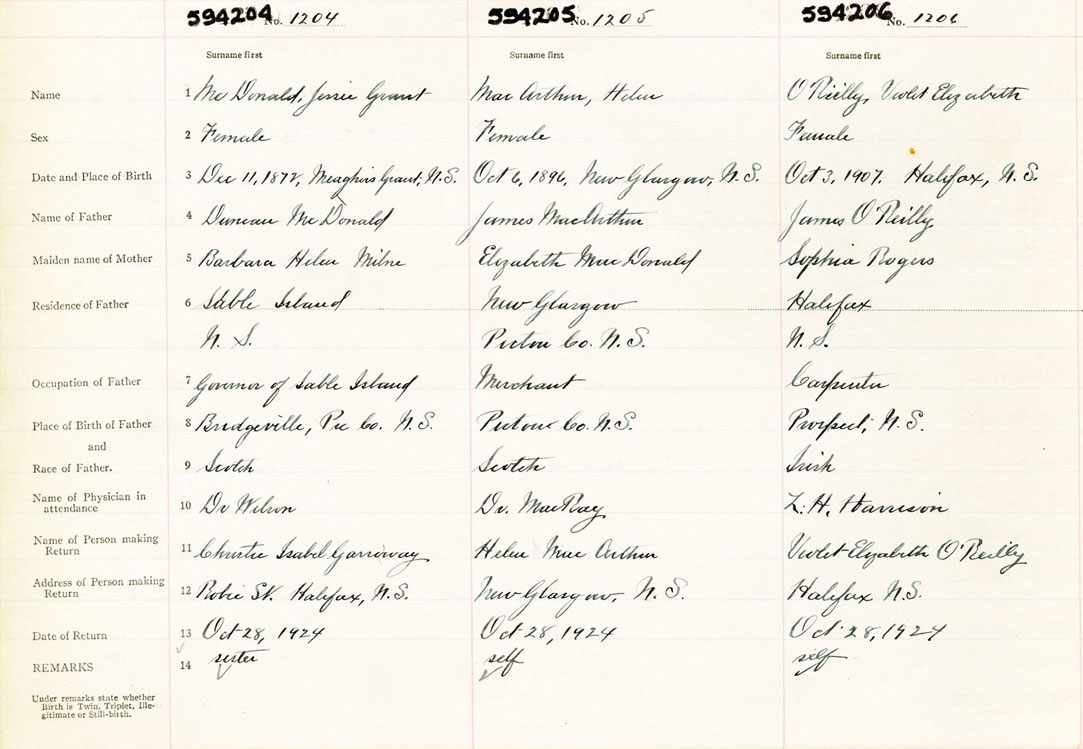 594204 No. 1204 594205 No. 1205 594206 No. 1206
Surname first Surname first Surname first
Name 1 Mc Donald, Jessie Grant Mac Arthur, Helen O'Reilly, Violet Elizabeth
Sex 2 Female Female Female
Date and Place of Birth 3 Dec 11, 1872, Meaghers Grant, N.S. Oct 6, 1896, New Glasgow, N.S. Oct 3, 1907. Halifax, N.S.
Name of Father 4 Duncan McDonald James MacArthur James O'Reilly
Maiden name of Mother 5 Barbara Helen Milne Elizabeth MacDonald Sophia Rogers
Residence of Father 6 Sable Island New Glasgow Halifax
N. S. Pictou Co. N.S. N. S.
Occupation of Father 7 Governor of Sable Island Merchant Carpenter
Place of Birth of Father 8 Bridgeville, Pic Co. N.S. Pictou Co. N.S. Prospect, N.S.
and
Race of Father. 9 Scotch Scotch Irish
Name of Physician in
attendance 10 Dr Wilson Dr. MacKay L. H. Harrison
Name of Person making
Return 11 Christie Isabel Garroway Helen Mac Arthur Violet Elizabeth O'Reilly
Address of Person making
Return 12 Robie St. Halifax, N.S. New Glasgow, N.S. Halifax N.S.
Date of Return 13 Oct 28, 1924 Oct 28, 1924 Oct 28, 1924
REMARKS 14 sister self self
Under remarks state whether
Birth is Twin, Triplet, Ille-
gitimate or Still-birth.